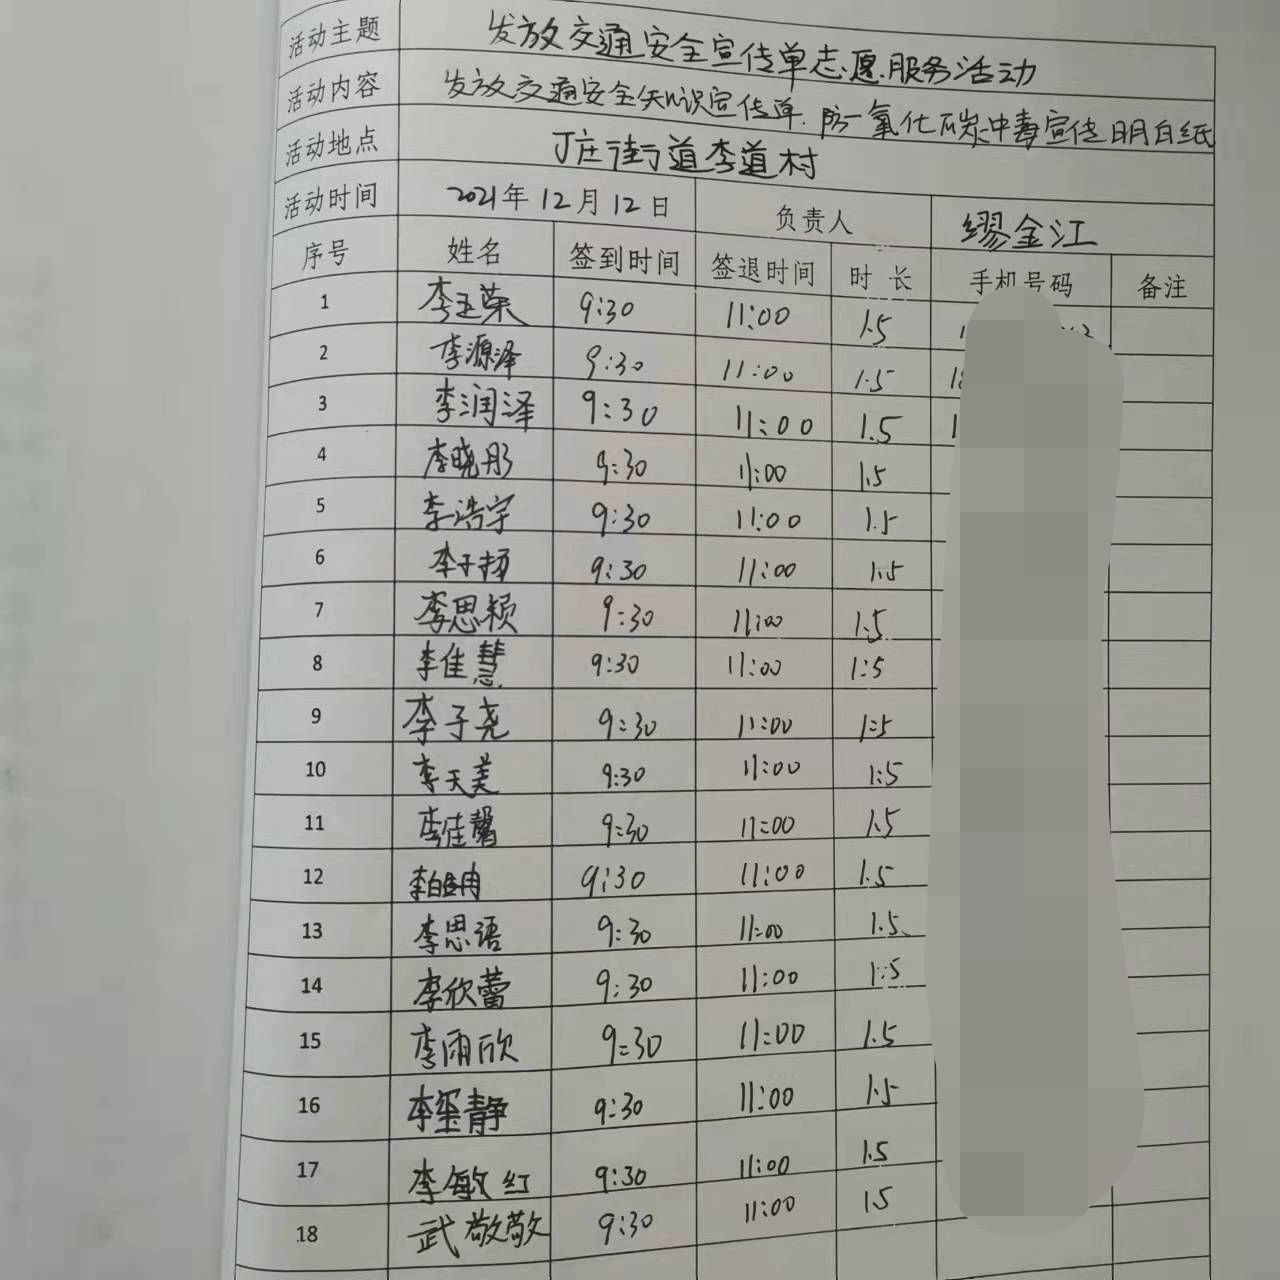 活动主题 发放交通安全宣传单志愿服务活动
活动内容 发放交通安全知识宣传单.防一氧化碳中毒宣传明白纸
活动地点 丁庄街道李道村
活动时间 2021年12月12日 负责人 缪金江
序号 姓名 签到时间 签退时间 时长 手机号码 备注
1 李玉荣 9:30 11:00 1.5
2 李源泽 9:30 11:00 1.5
3 李润泽 9:30 11:00 1.5
4 李晓彤 9:30 11:00 1.5
5 李浩宇 9:30 11:00 1.5
6 李子扬 9:30 11:00 1.5
7 李思颖 9:30 11:00 1.5
8 李佳慧 9:30 11:00 1:5
9 李子尧 9:30 11:00 1:5
10 李天美 9:30 11:00 1:5
11 李佳馨 9:30 11:00 1.5
12 9:30 11:00 1.5
13 李思语 9:30 11:00 1.5
14 李欣蕾 9:30 11:00 1:5
15 李雨欣 9:30 11:00 1.5
16 9:30 11:00 1.5
17 李敏红 9:30 11:00 1.5
18 武敬敬 9:30 11:00 1.5